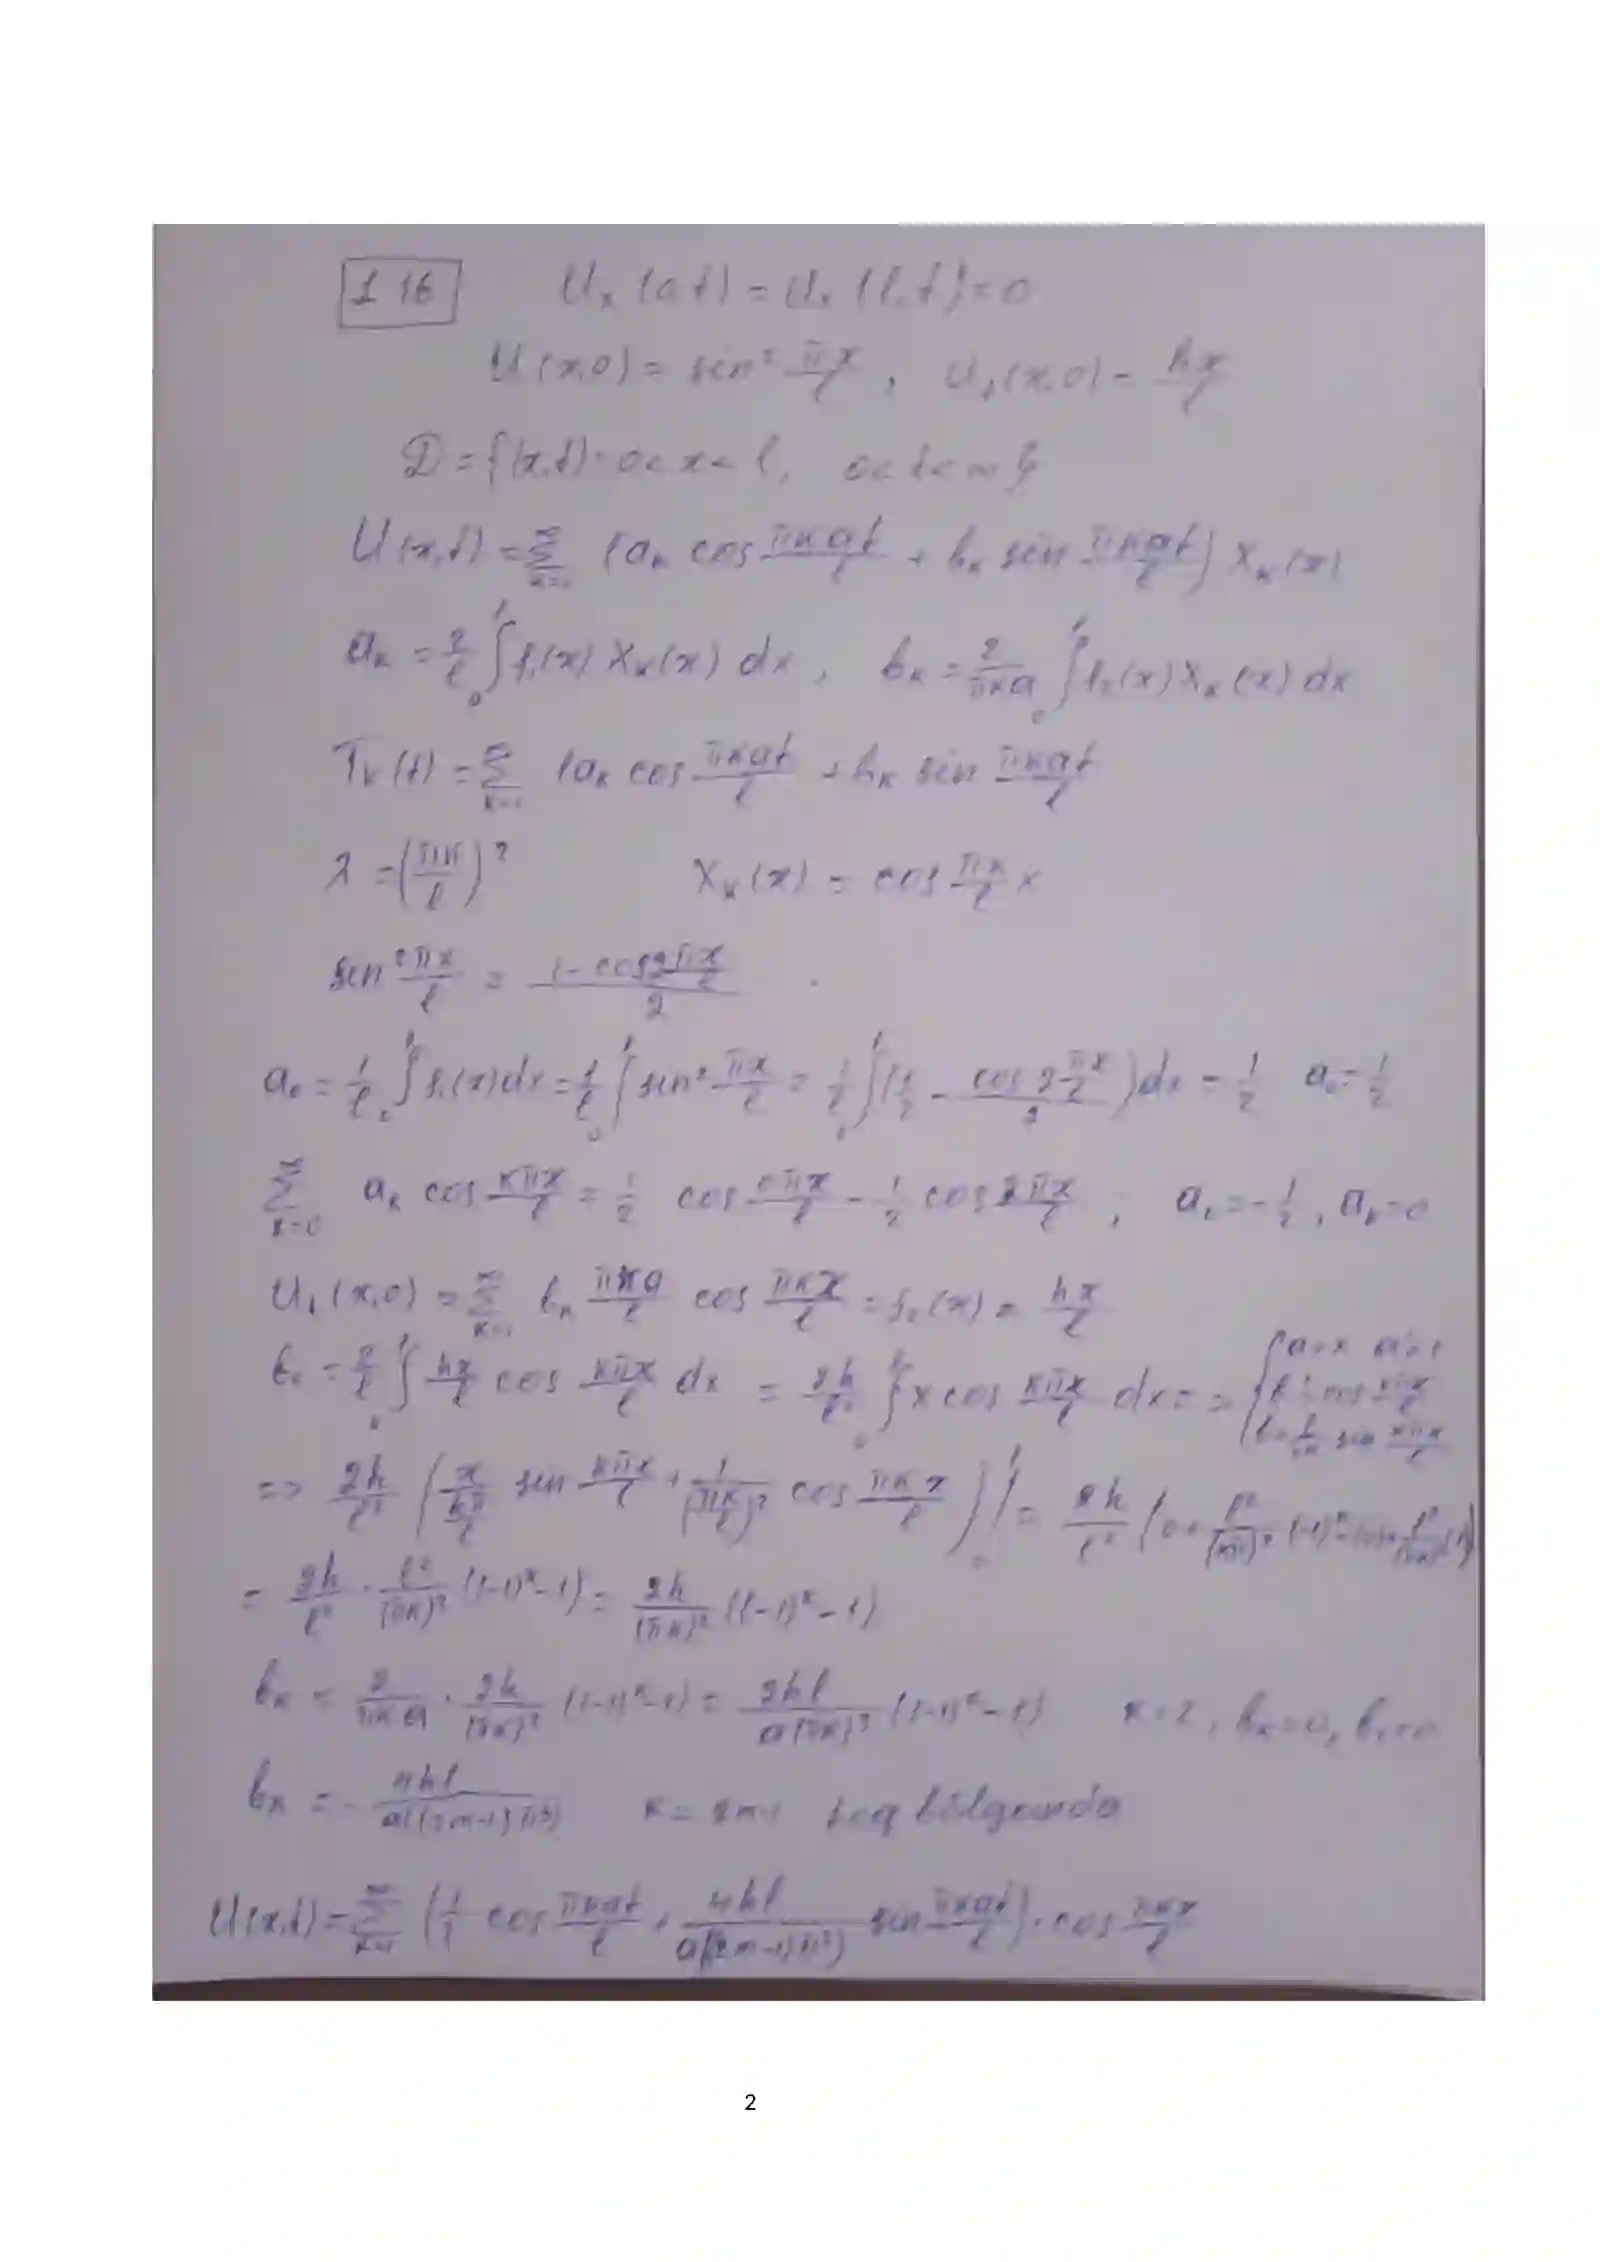 1 16 U_x(0,t) = U_x(l,t) = 0
U(x,0) = sin² πx/l , U_t(x,0) = hx/l
D = {(x,t): 0 < x < l, 0 < t < ∞}
U(x,t) = ∑_{k=1}^∞ (a_k cos πkat/l + b_k sin πkat/l) X_k(x)
a_k = 2/l ∫_0^l f_1(x) X_k(x) dx , b_k = 2/πka ∫_0^l f_2(x) X_k(x) dx
T_k(t) = ∑_{k=1}^∞ (a_k cos πkat/l + b_k sin πkat/l
λ = (πk/l)² X_k(x) = cos πk/l x
sin² πx/l = (1 - cos 2πx/l)/2
a_0 = 1/l ∫_0^l f_1(x)dx = 1/l ∫_0^l sin² πx/l = 1/l ∫_0^l (1/2 - (cos 2 πx/l)/2) dx = 1/2 a_0 = 1/2
∑_{k=0}^∞ a_k cos kπx/l = 1/2 cos 0πx/l - 1/2 cos 2πx/l ; a_2 = -1/2 , a_k = 0
U_t(x,0) = ∑_{k=1}^∞ b_k πka/l cos πkx/l = f_2(x) = hx/l
b_0 = 2/l ∫_0^l hx/l cos kπx/l dx = 2h/l² ∫_0^l x cos kπx/l dx = =
=> 2h/l² (x/(kπ/l) sin kπx/l + 1/(πk/l)² cos πkx/l)|_0^l = 2h/l² (0 + l²/(kπ)² (-1)^k
= 2h/l² · l²/(πk)² ((-1)^k - 1) = 2h/(πk)² ((-1)^k - 1)
b_k = 2/πka · 2h/(πk)² ((-1)^k - 1) = 2hl/a(πk)³ ((-1)^k - 1) k = 2, b_k = 0,
b_k = - 4hl/a((2m-1)π³) k = 2m-1
U(x,t) = ∑_{k=1}^∞ (1/2 cos πkat/l + 4hl/a((2m-1)π³) sin πkat/l) · cos πkx/l
2